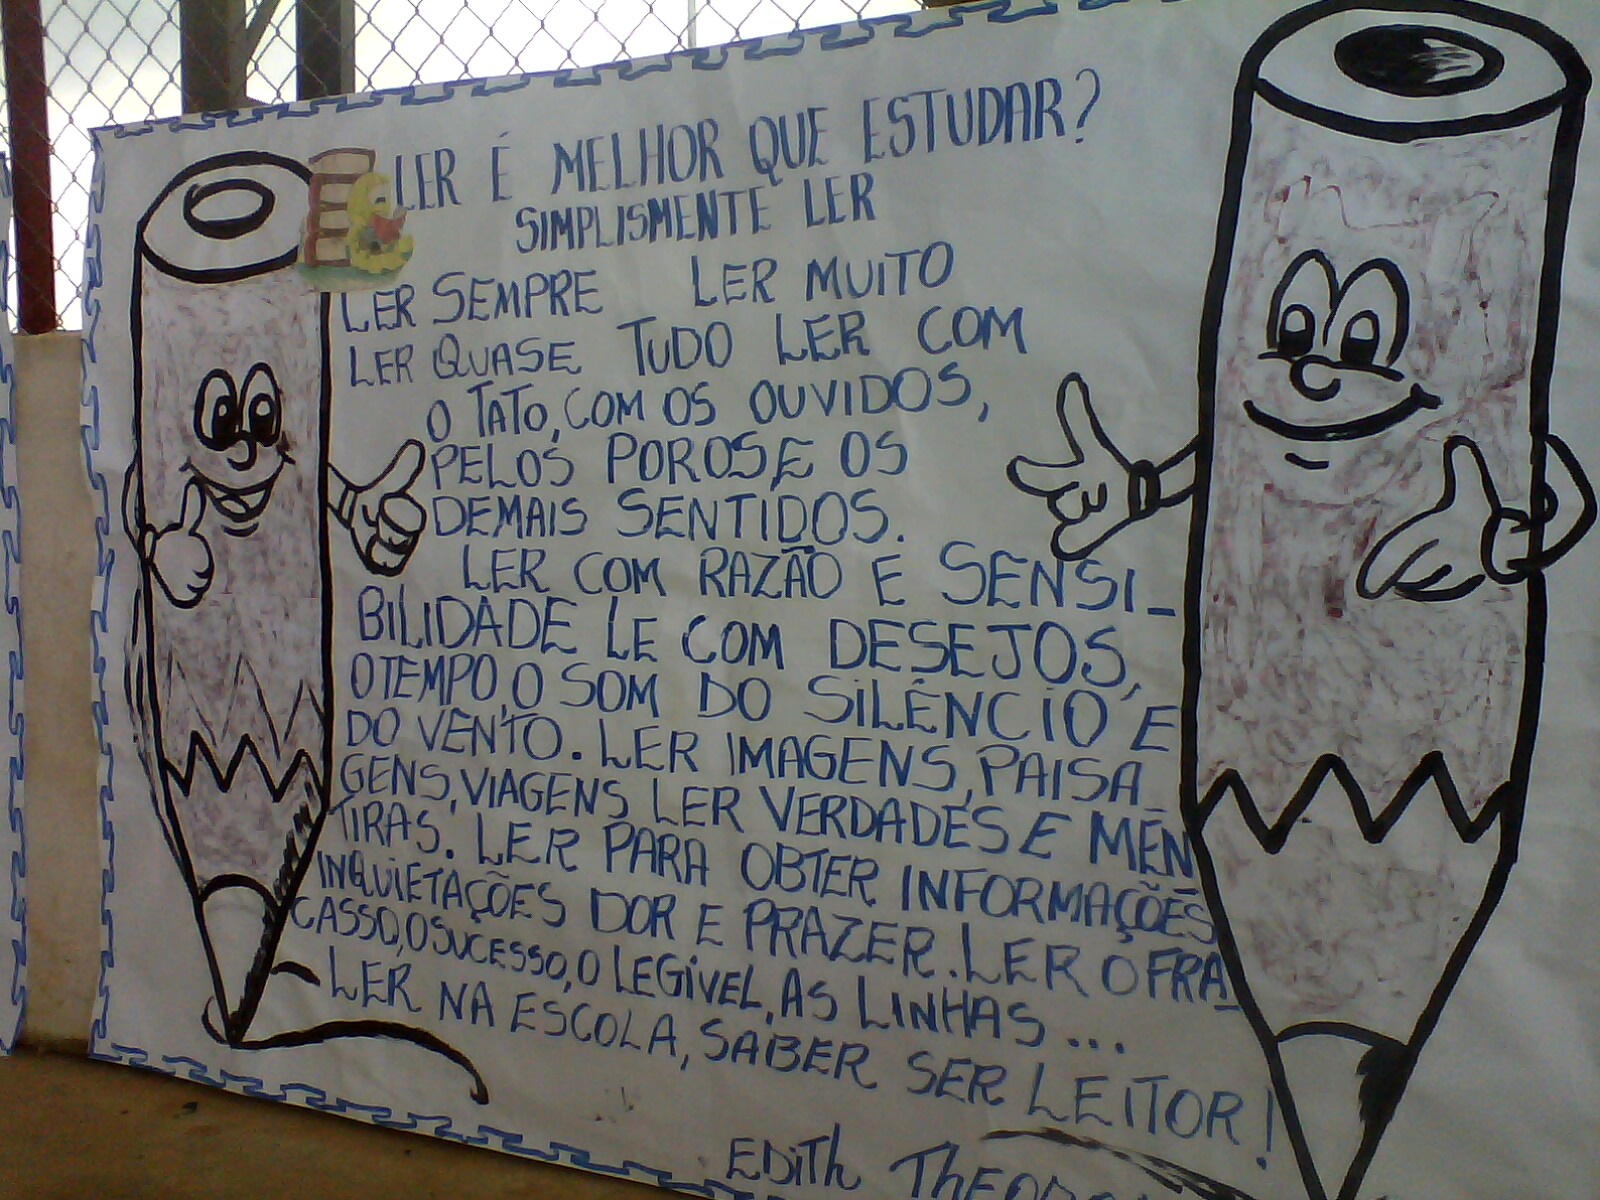 LER É MELHOR QUE ESTUDAR?
SIMPLISMENTE LER
LER SEMPRE LER MUITO
LER QUASE TUDO LER COM
O TATO, COM OS OUVIDOS,
PELOS POROS E OS
DEMAIS SENTIDOS.
LER COM RAZÃO E SENSI_
BILIDADE LE COM DESEJOS,
O TEMPO, O SOM DO SILÊNCIO E
DO VENTO. LER IMAGENS, PAISA_
GENS, VIAGENS LER VERDADES E MEN
TIRAS. LER PARA OBTER INFORMAÇÕES
INQUIETAÇÕES DOR E PRAZER. LER O FRA_
CASSO, O SUCESSO, O LEGÍVEL, AS LINHAS...
LER NA ESCOLA, SABER SER LEITOR!
EDITH